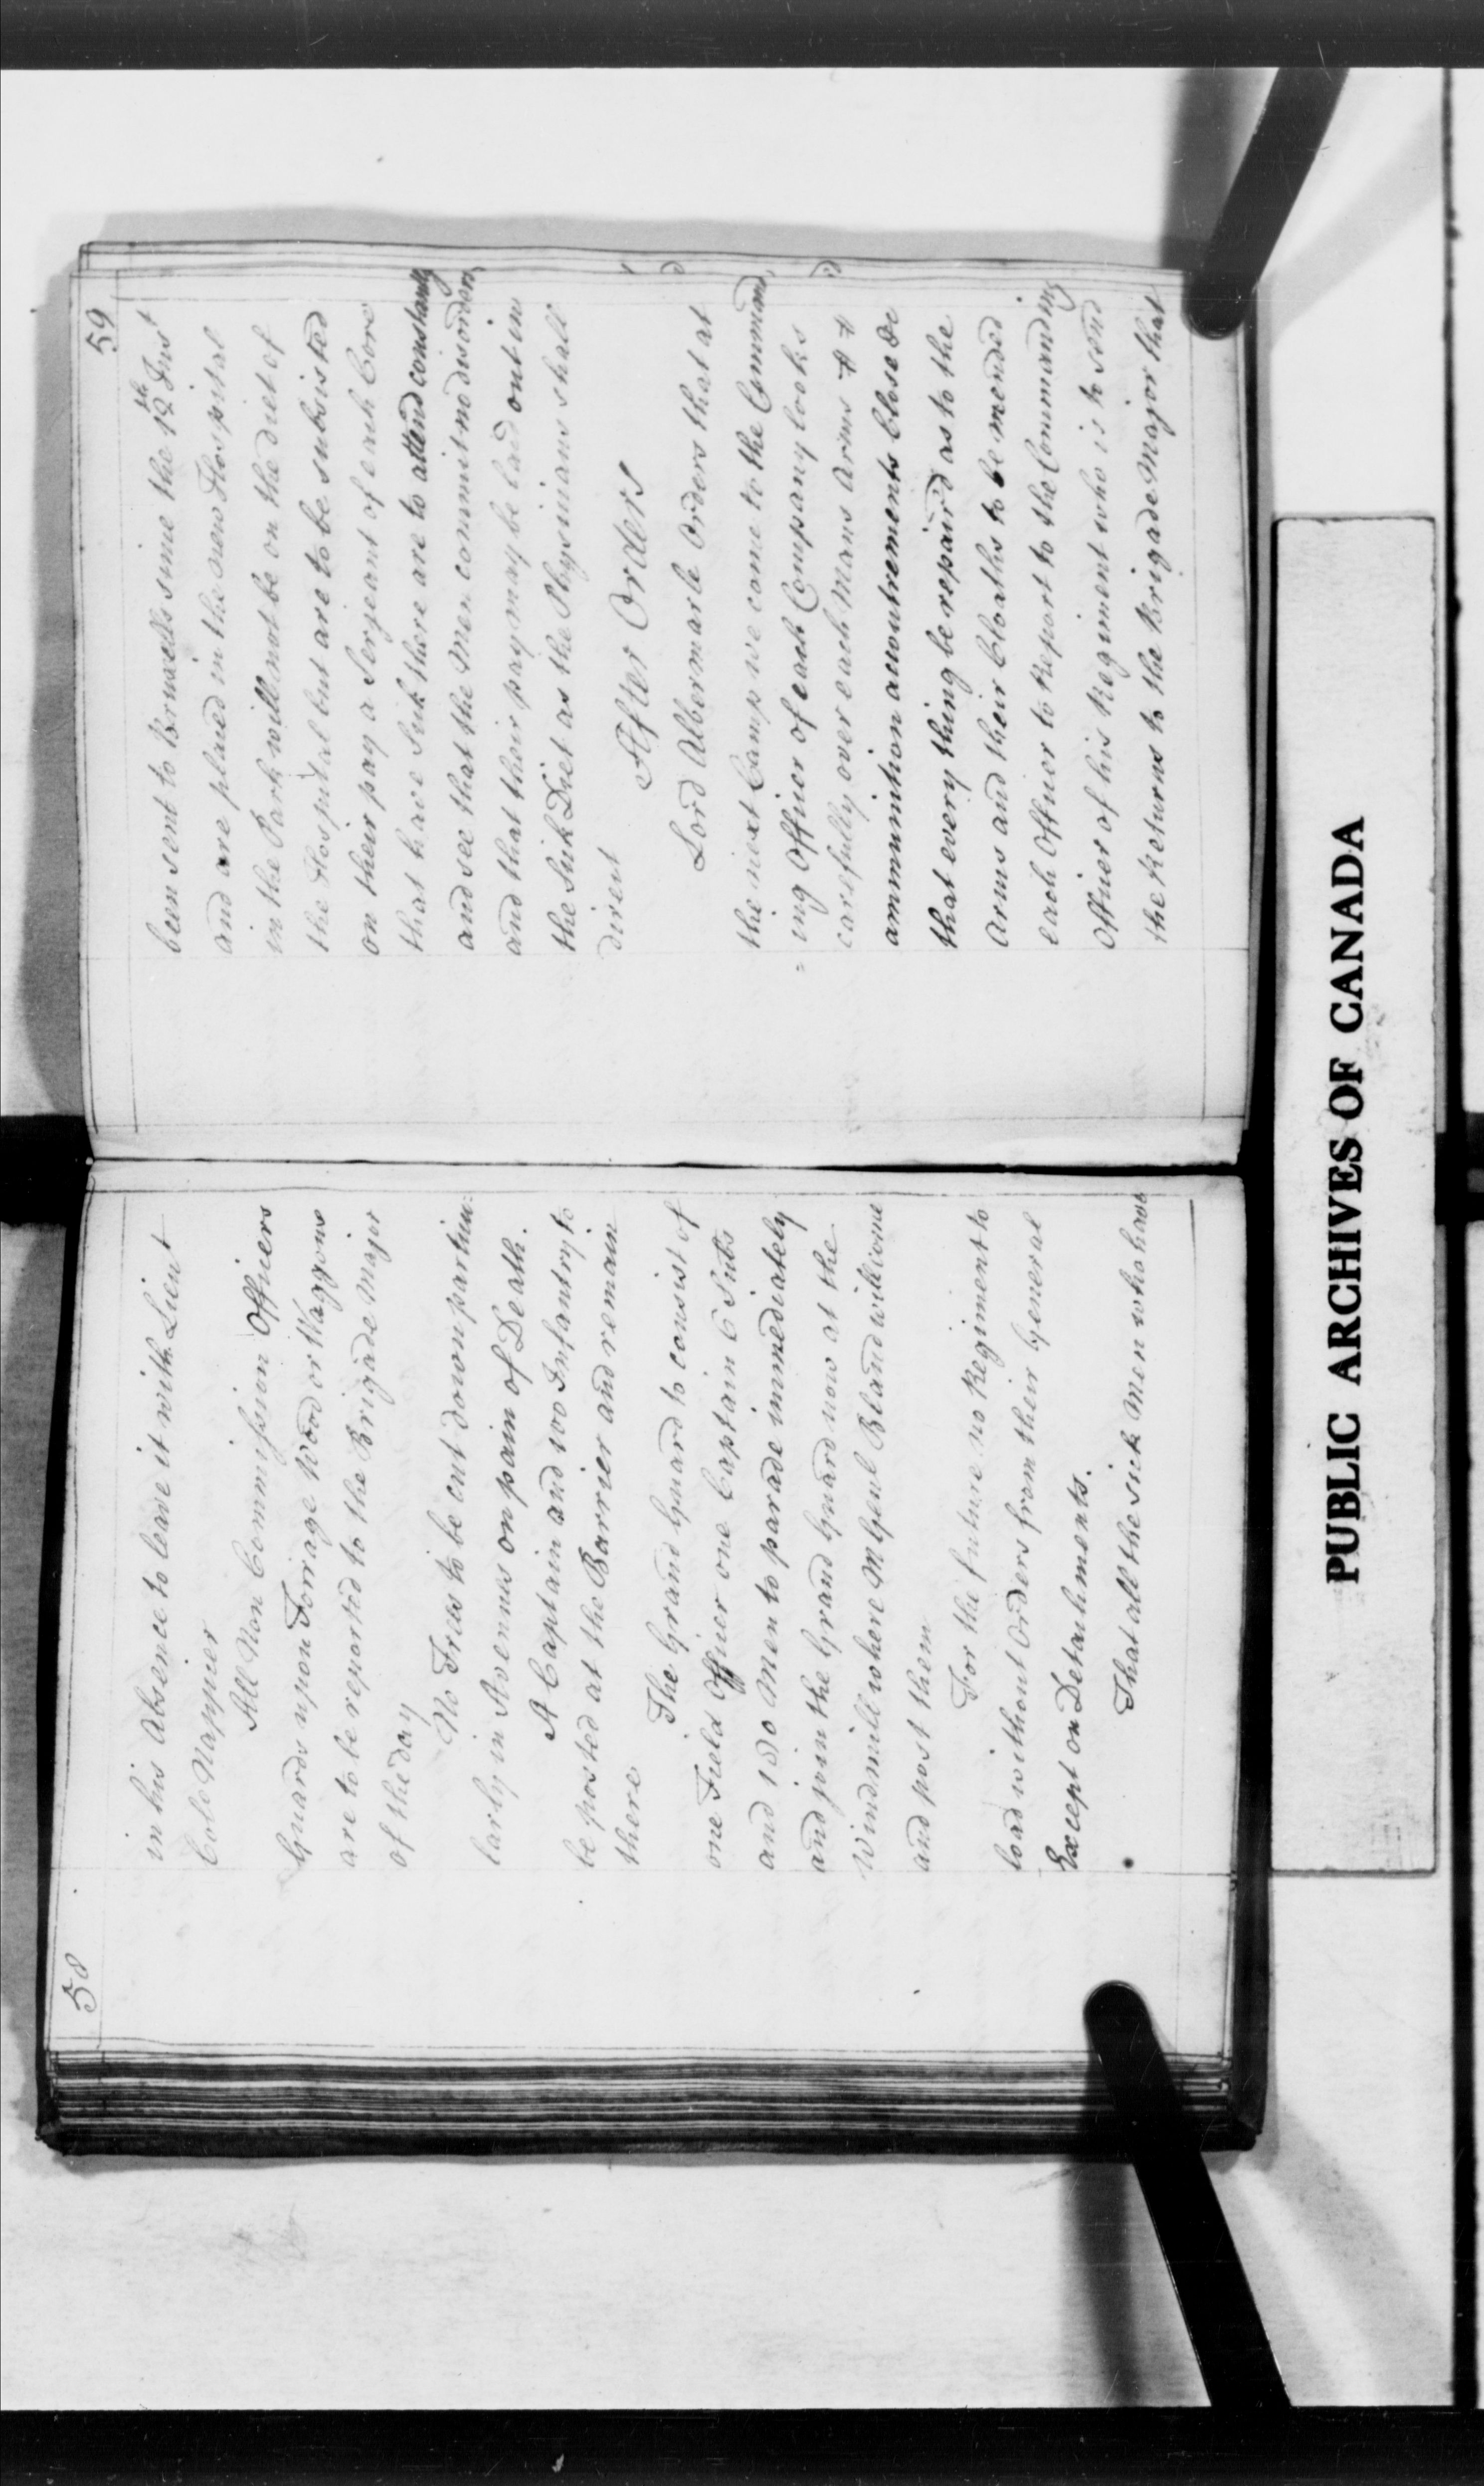 58
in his Absence to leave it with Lieut
Colo Napper
All Non Commission Officers
Guards upon Forrage Wood or Waggons
are to be reported to the Brigade Major
of the day
No Trees to be cut down particu=
larly in Avenues on pain of Death.
A Captain and 100 Infantry to
be posted at the Barrier and remain
there
The Grand Guard to consist of
one Field Officer one Captain 6 Subs
and 150 Men to parade immediately
and join the Grand Guard now at the
Windmill where M Genl Bland will come
and post them
For the future no Regiment to
load without Orders from their General
Except on Detachments.
That all the sick Men who have
59
been sent to Brusells since the 12th Inst
and are placed in the new Hospital
in the Park will not be on the diet of
the Hospital but are to be subsisted
on their pay a Serjeant of each Core
that have Sick there are to attend constantly
and see that the Men commit no disorders
and that their pay may be laid out in
the Sick Diet as the Physicians shall
direct
After Orders
Lord Albermarle Orders that at
the next Camp we come to the Command
=ing Officer of each Company looks
carefully over each Mans Arms
ammunition accoutrements Close &c
that every thing be repair'd as to the
Arms and their Cloaths to be mended
each Officer to Report to the Commanding
Officer of his Regiment who is to send
the Returns to the Brigade Major that
PUBLIC ARCHIVES OF CANADA